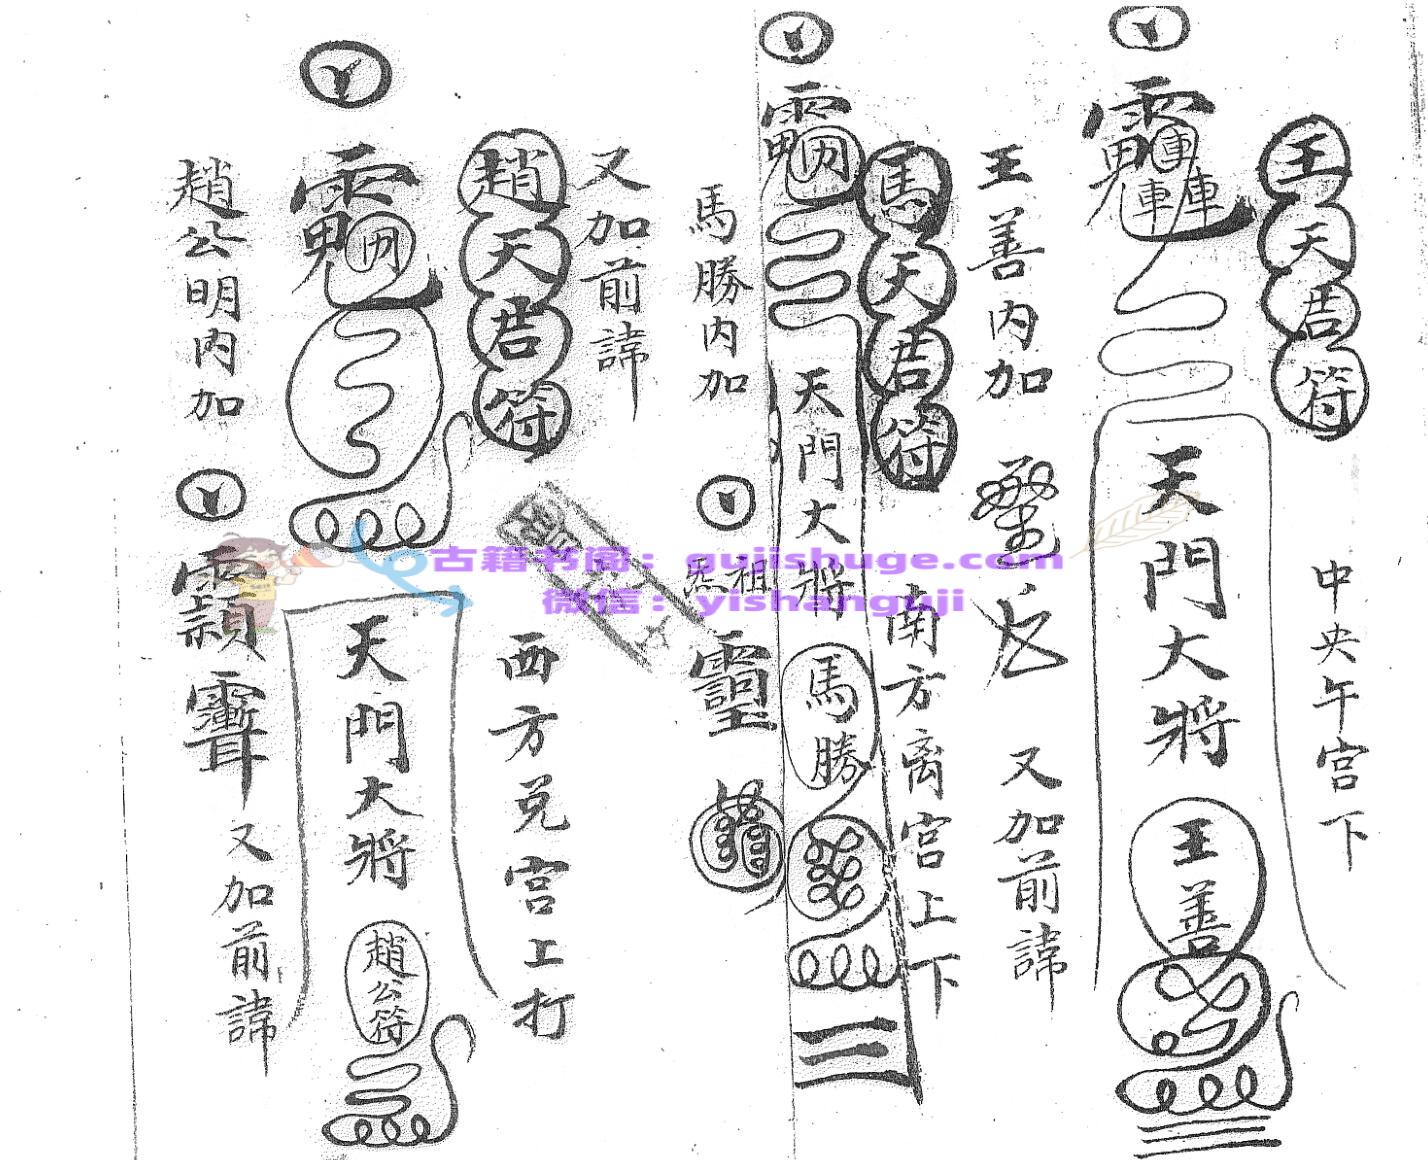 王天君符
中央午宮下
天門大將
王善
王善内加
又加前諱
馬天君符
南方离宮上下
天門大將
馬勝
馬勝内加
祖炁
又加前諱
趙天君符
西方兌宮上打
天門大將
趙公符
趙公明内加
又加前諱
古籍书阁：gujishuge.com
微信：yishanguji